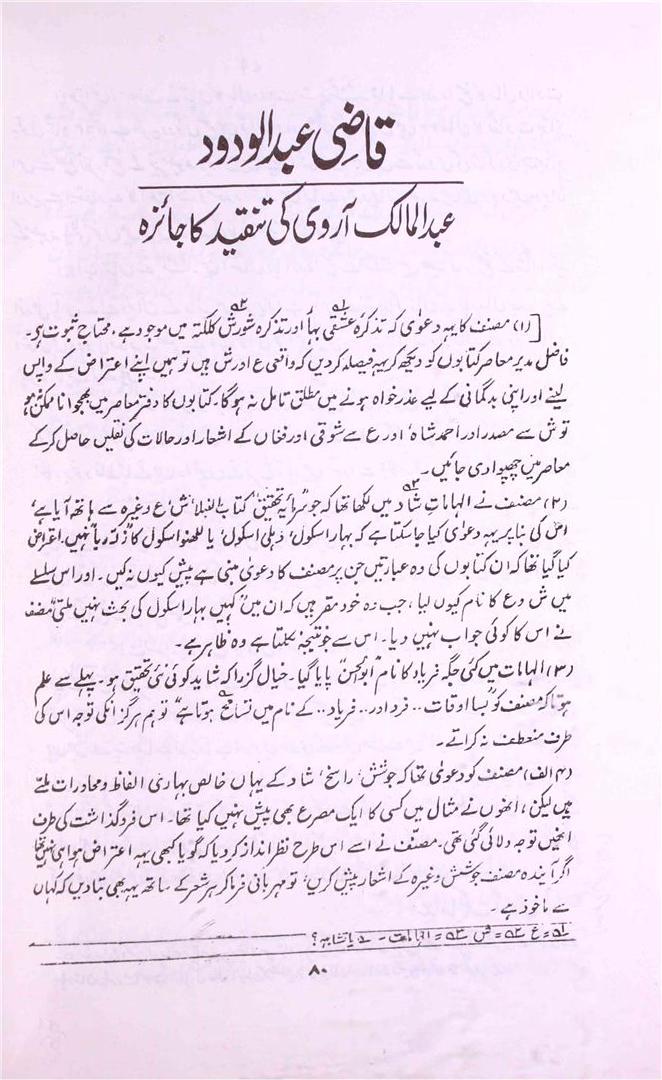 قاضی عبدالودود
عبدالمالک آروی کی تنقید کا جائزہ
[(۱) مصنف کا یہہ دعویٰ کہ تذکرۂ عشقی بہا اور تذکرہ شورش کلکتہ میں موجود ہے، محتاج ثبوت ہے۔
فاضل مدیر معاصر کتابوں کو دیکھ کر یہہ فیصلہ کردیں کہ واقعی ع اور ش ہیں تو ہمیں اپنے اعتراض کے واپس
لینے اور اپنی بدگمانی کے لیے عذر خواہ ہونے میں مطلق تامل نہ ہوگا۔ کتابوں کا دفتر معاصر میں بھجوانا ممکن ہو
تو ش سے مصدر اور احمد شاہ، اور ع سے شوقی اور فغاں کے اشعار اور حالات کی نقلیں حاصل کرکے
معاصر میں چھپوا دی جائیں۔
(۲) مصنف نے الہامات شاد میں لکھا تھا کہ جو سرمایہ تحقیق، کتاب النبلا، ش، ع وغیرہ سے ہاتھ آیا ہے،
اس کی بنا پر یہہ دعویٰ کیا جاسکتا ہے کہ بہار اسکول، دہلی اسکول، یا لکھنو اسکول کا زلہ ربا نہیں، اعتراض
کیا گیا تھا کہ ان کتابوں کی وہ عبارتیں جن پر مصنف کا دعویٰ مبنی ہے پیش کیوں نہ کیں۔ اور اس سلسلے
میں ش و ع کا نام کیوں لیا، جب وہ خود مقر ہیں کہ ان میں" کہیں بہار اسکول کی بحث نہیں ملتی" مصنف
نے اس کا کوئی جواب نہیں دیا۔ اس سے جو نتیجہ نکلتا ہے وہ ظاہر ہے۔
(۳) الہامات میں کئی جگہ فریاد کا نام "ابوالحسن" پایا گیا۔ خیال گزرا کہ شاید کوئی نئی تحقیق ہو۔ پہلے سے علم
ہوتا کہ مصنف کو "بسا اوقات .. فرد اور .. فریاد .. کے نام میں تسامح ہوتا ہے" تو ہم ہرگز انکی توجہ اس کی
طرف منعطف نہ کراتے۔
(۴ الف) مصنف کو دعویٰ تھا کہ جوشش، راسخ، شاد کے یہاں خالص بہاری الفاظ و محاورات ملتے
ہیں لیکن، انھوں نے مثال میں کسی کا ایک مصرع بھی پیش نہیں کیا تھا۔ اس فرو گذاشت کی طرف
انھیں توجہ دلائی گئی تھی۔ مصنف نے اسے اس طرح نظر انداز کردیا کہ گویا کبھی یہہ اعتراض ہوا ہی نہیں تھا
اگر آیندہ مصنف جوشش وغیرہ کے اشعار پیش کریں، تو مہربانی فرماکر ہر شعر کے ساتھ یہہ بھی بتادیں کہ کہاں
سے ماخوذ ہے۔
۱ = ع ۲ = ش ۳ = الہامات۔
۸۰